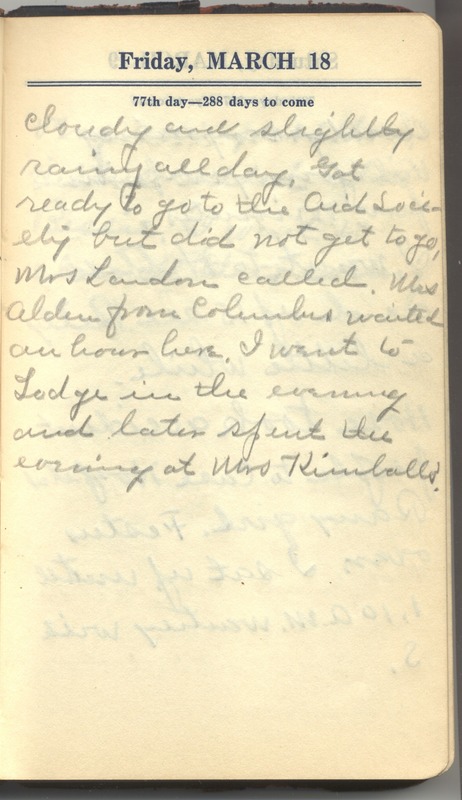 Friday, MARCH 18
77th day—288 days to come
cloudy and slightly
rainy all day. Got
ready to go to the Aid Soci-
ety but did not get to go,
Mrs Landon called. Mrs
Alden from Columbus waited
an hour here. I went to
Lodge in the evening
and later spent the
evening at Mrs Kimballs.